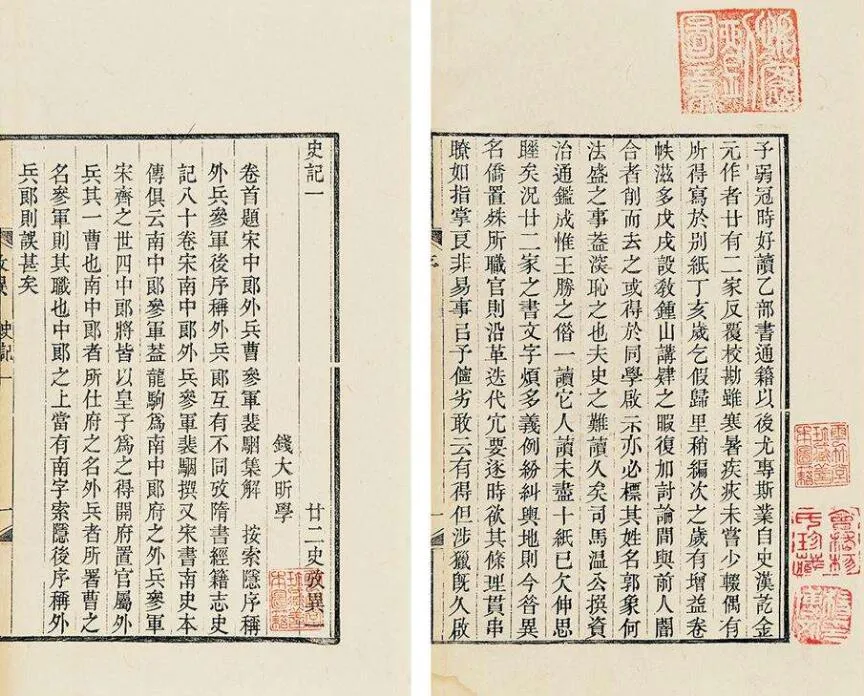 予弱冠時好讀乙部書通籍以後尤專斯業自史漢訖金
元作者廿有二家反覆校勘雖寒暑疾疢未嘗少輟偶有
所得寫於別紙丁亥歲乞假歸里稍編次之歲有增益卷
帙滋多戊戌設敎鍾山講肄之暇復加討論間與前人闇
合者削而去之或得於同學啟示亦必標其姓名郭象何
法盛之事葢深恥之也夫史之難讀久矣司馬温公撰資
治通鑑成惟王勝之借一讀它人讀未盡十紙已欠伸思
睡矣況廿二家之書文字煩多義例紛糾輿地則今昔異
名僑置殊所職官則沿革迭代冗要逐時欲其條理貫串
瞭如指掌良非易事㠯予儜劣敢云有得但涉獵旣久啟
史記一 廿二史攷異一
錢大昕學
卷首題宋中郎外兵曹參軍裴駰集解 按索隱序稱
外兵參軍後序稱外兵郎互有不同攷隋書經籍志史
記八十卷宋南中郎外兵參軍裴駰撰又宋書南史本
傳俱云南中郎參軍葢龍駒爲南中郎府之外兵參軍
宋齊之世四中郎將皆以皇子爲之得開府置官屬外
兵其一曹也南中郎者所仕府之名外兵者所署曹之
名參軍則其職也中郎之上當有南字索隱後序稱外
兵郎則誤甚矣
攷異 史記一